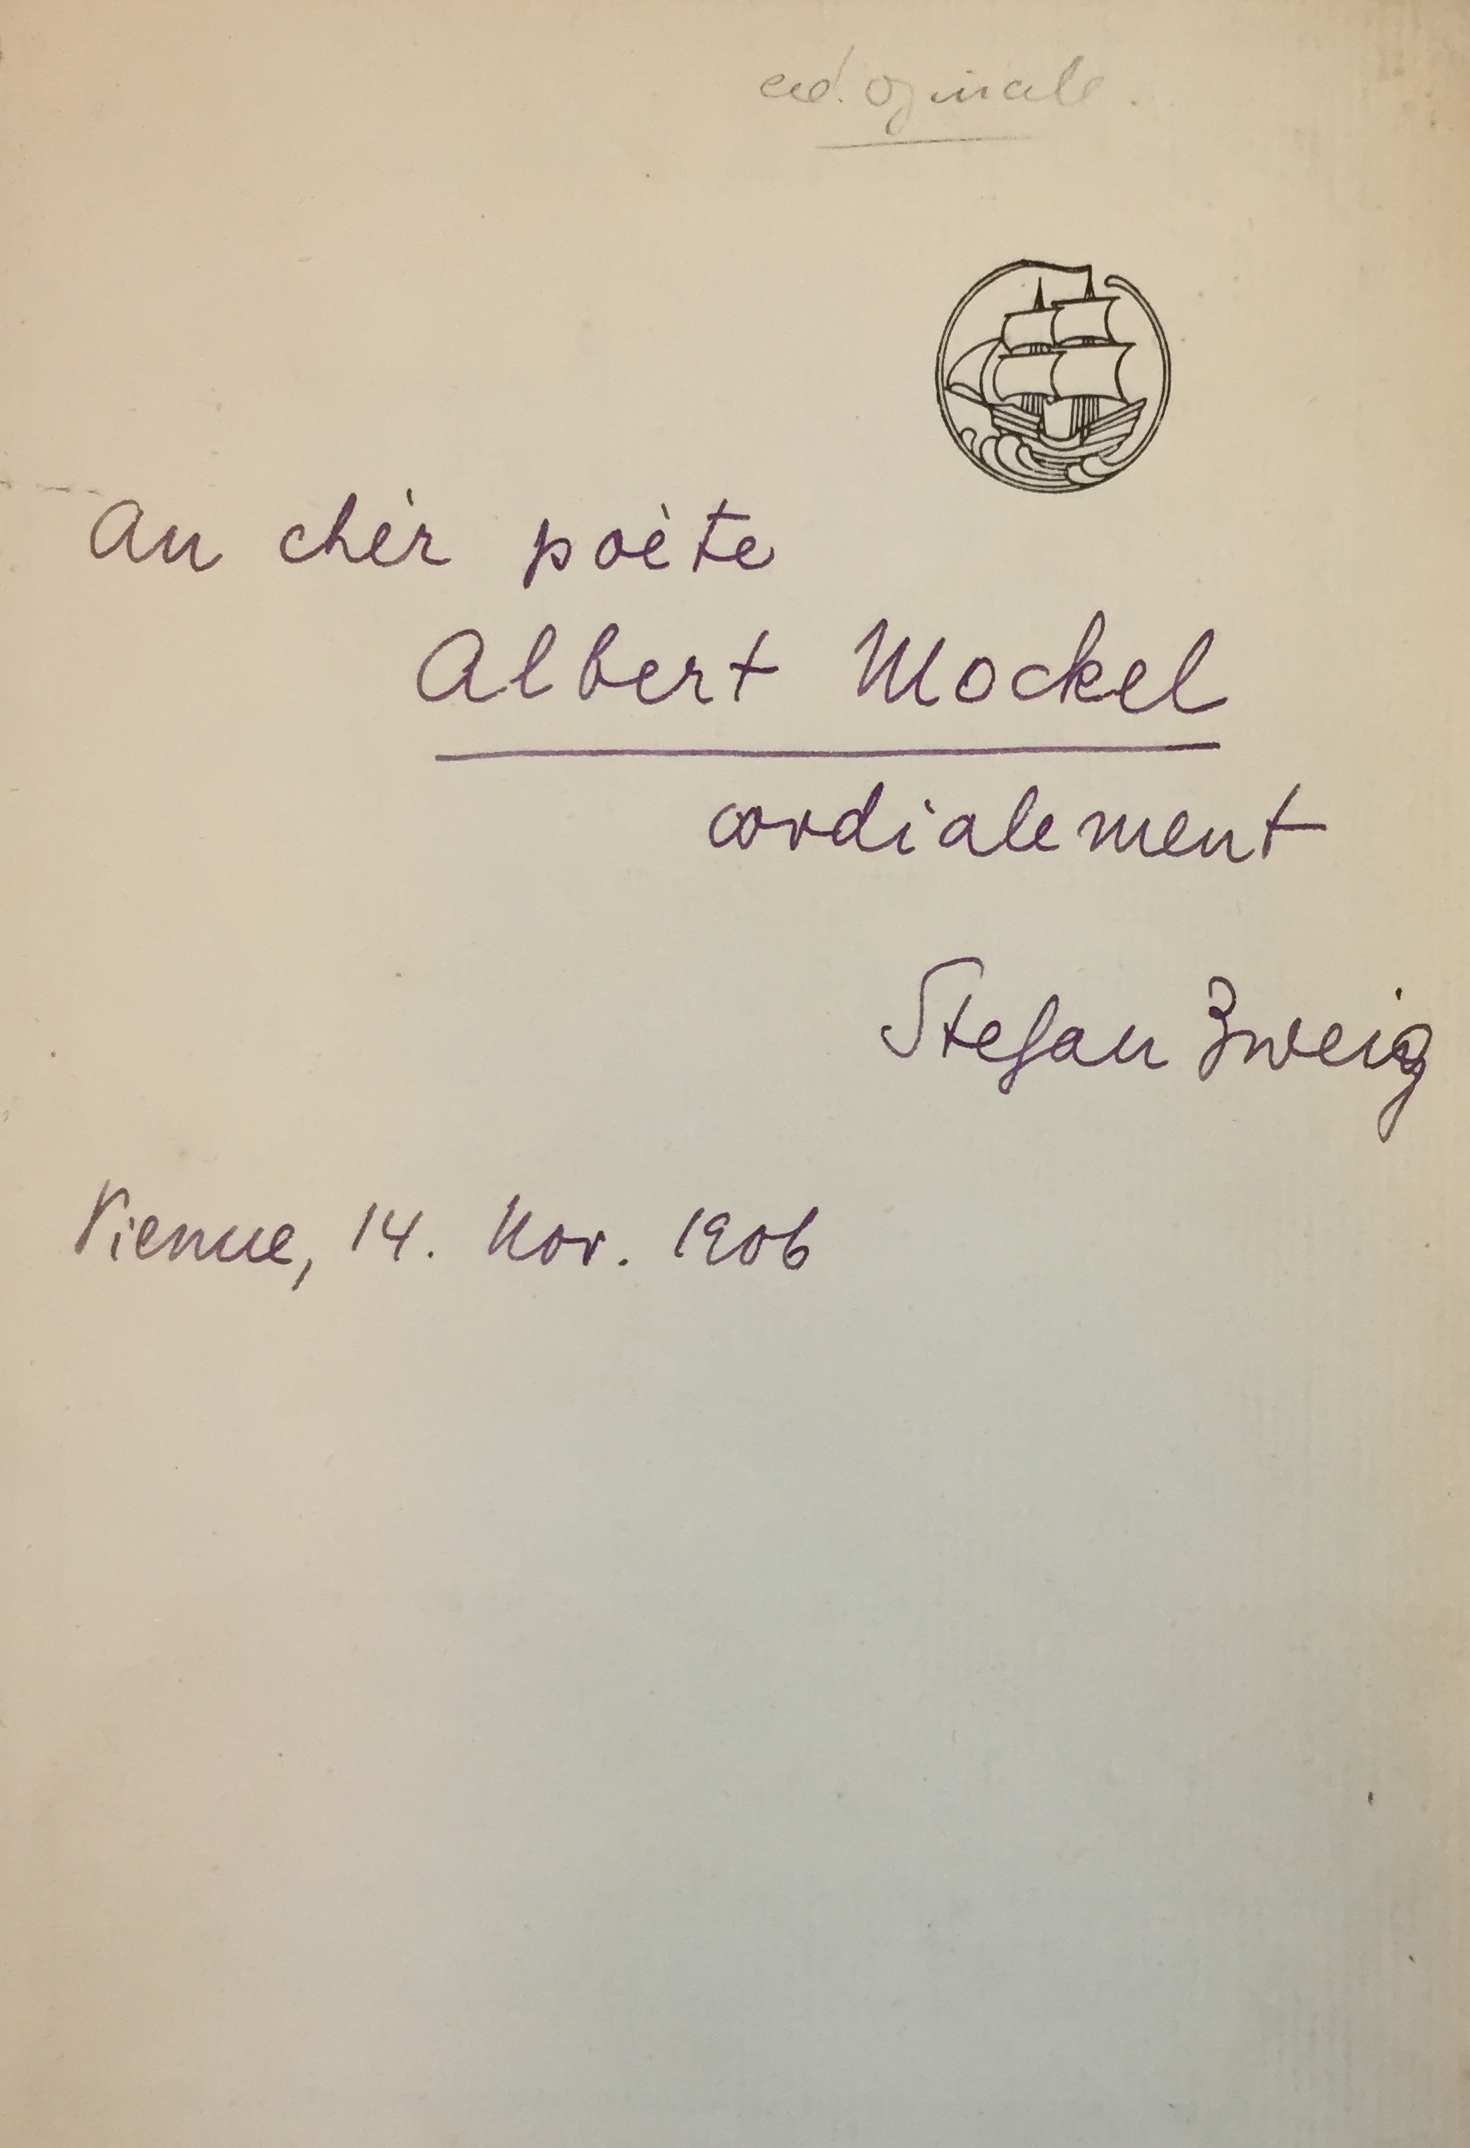 ed. originale.
Au chèr poète
Albert Mockel
cordialement
Stefan Zweig
Vienne, 14. Nov. 1906